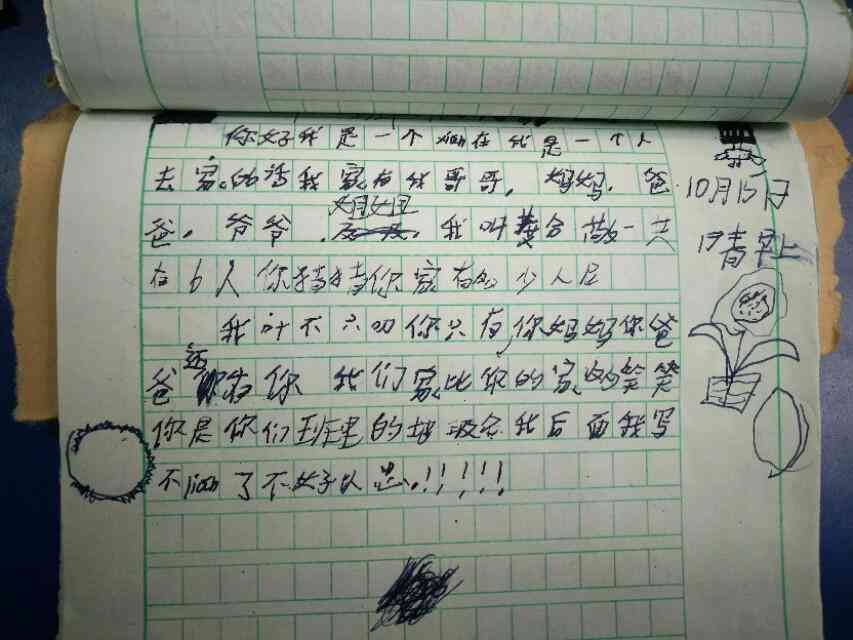 你好我是一个xian在我是一个人
去家的话我家有我哥哥,妈妈.爸
姐姐
爸.爷爷.我叫 合 一共
有6人你 你家有 少人
我 不 你只有,你妈妈你爸
还
爸 有你 我们家比你的家 笑笑
你是你们班里的 我后面我写
不jian了不好以思.!!!!!!
10月15日
早上